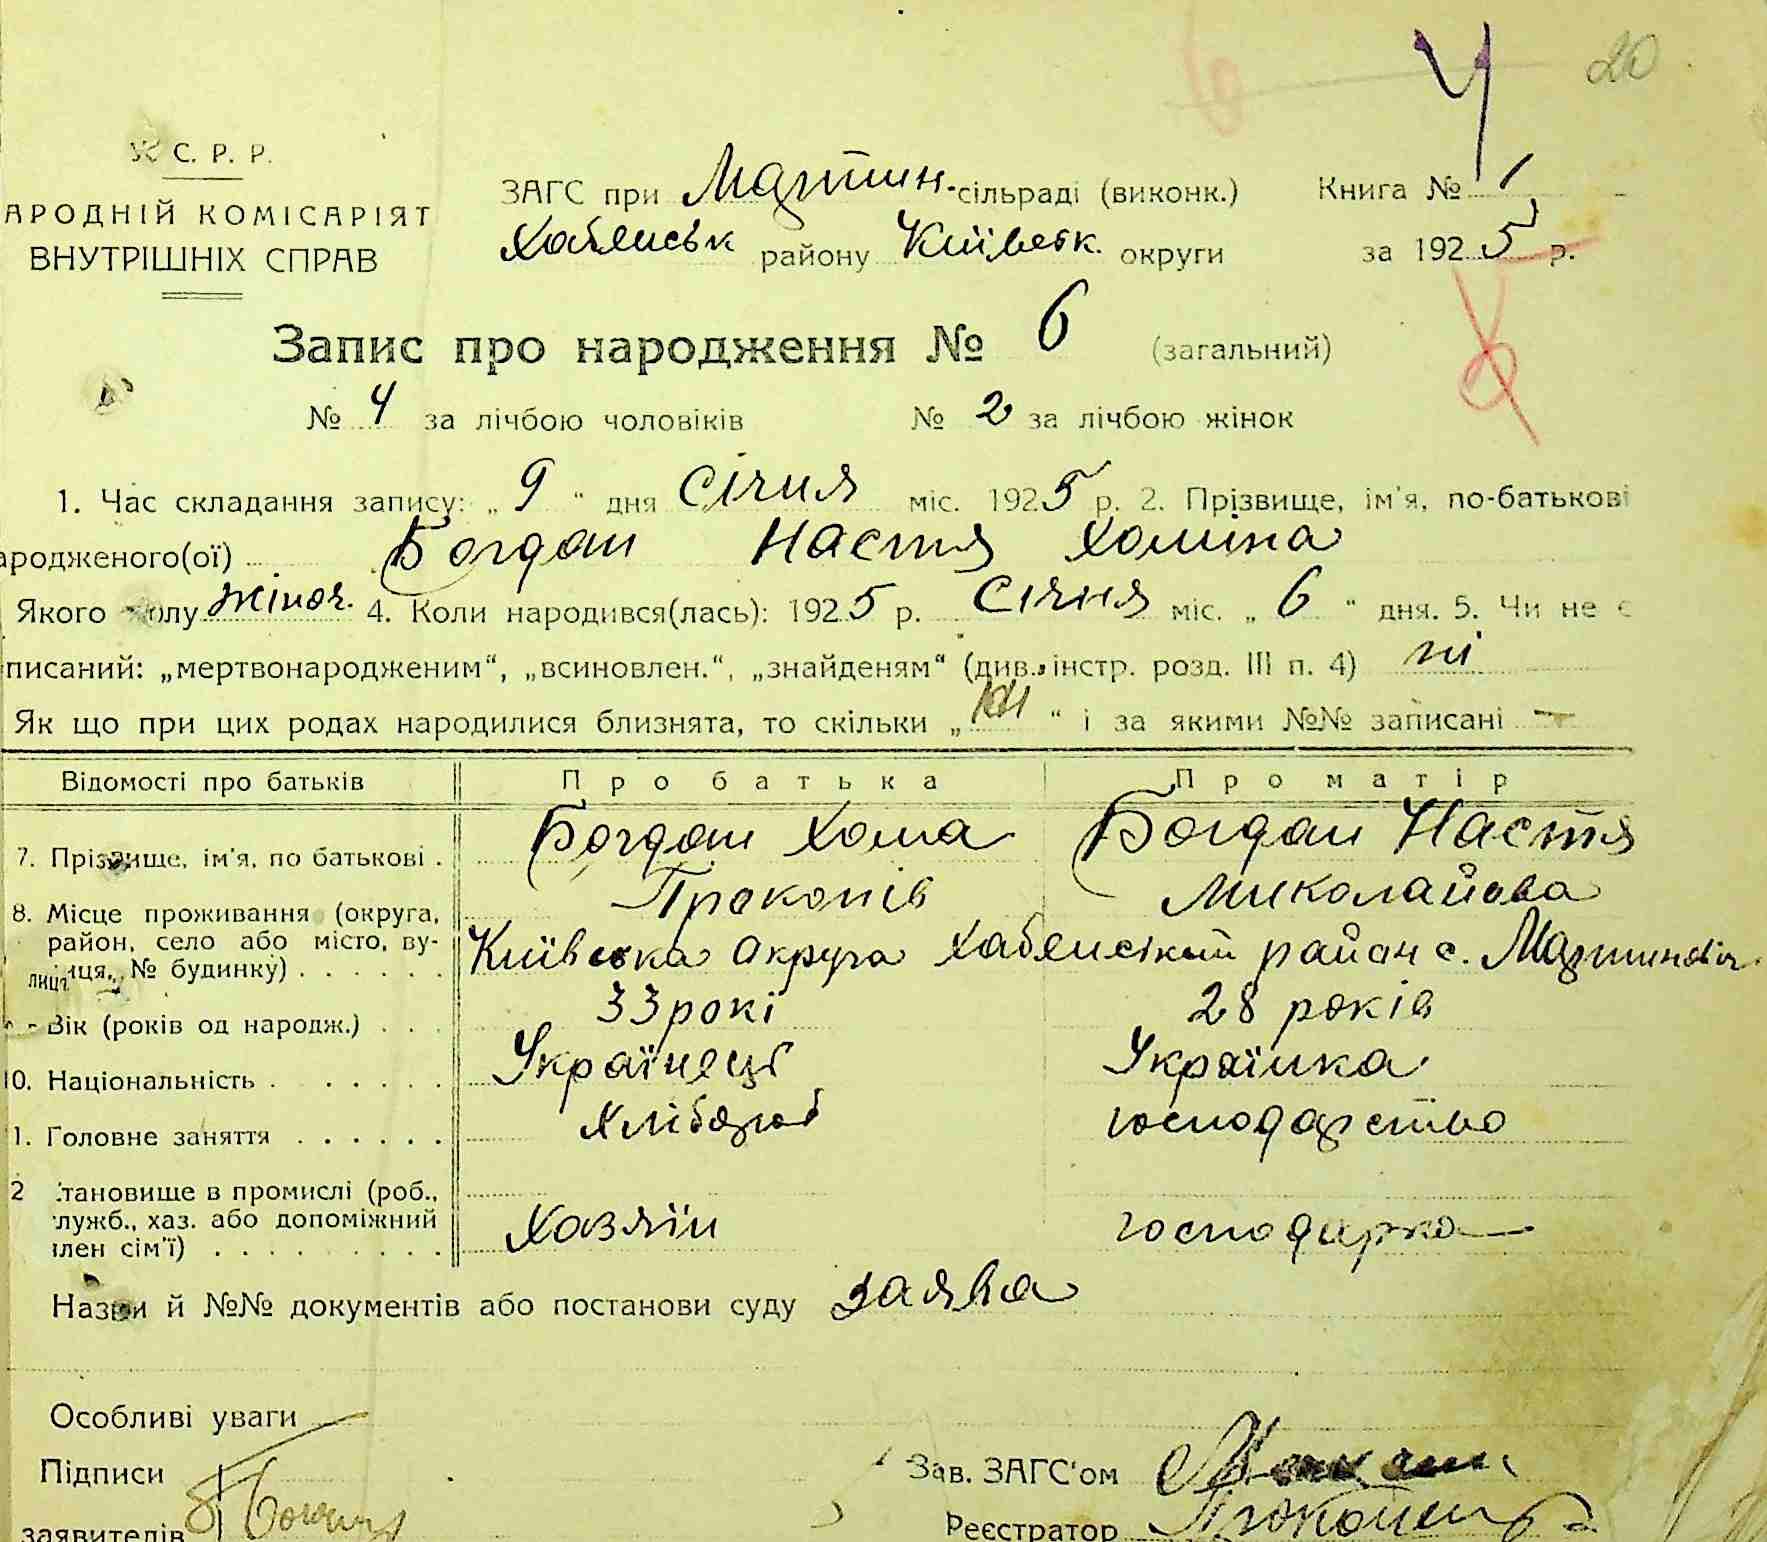 20
С. Р. Р.
АРОДНІЙ КОМІСАРІЯТ
ВНУТРІШНІХ СПРАВ
ЗАГС при Мартин. сільраді (виконк.) Книга № 1
Хабенськ району Київськ. округи за 1925 р.
Запис про народження № 6 (загальний)
№ 4 за лічбою чоловіків № 2 за лічбою жінок
1. Час складання запису: „ 9 “ дня Січня міс. 1925 р. 2. Прізвище, ім'я, по-батькові
ародженого(ої) Богдан Настя Хоміна
Якого полу жіноч. 4. Коли народився(лась): 1925 р. Січня міс. „ 6 “ дня. 5. Чи не є
писаний: „мертвонародженим“, „всиновлен.“, „знайденям“ (див. інстр. розд. III п. 4) ні
Як що при цих родах народилися близнята, то скільки „ ні “ і за якими №№ записані —
Відомості про батьків Про батька Про матір
7. Прізвище, ім'я, по батькові . Богдан Хома Прокопів Богдан Настя Миколайова
8. Місце проживання (округа, район, село або місто, вулиця, № будинку) . . . . . . Київська округа Хабенський район с. Мартинович
Вік (років од народж.) . . . 33 рокі 28 років
10. Національність . . . . . . . Українець Українка
1. Головне заняття . . . . . . Хлібороб господарство
2 тановище в промислі (роб., служб., хаз. або допоміжний член сім'ї) . . . . . . . . . Хазяїн господарка
Назви й №№ документів або постанови суду заява
Особливі уваги —
Підписи
заявителів
Зав. ЗАГС'ом
Реєстратор